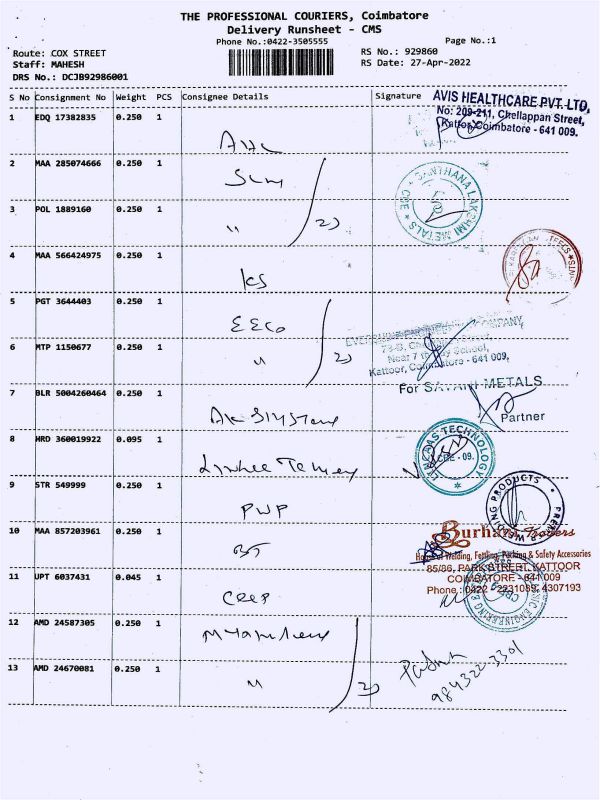 THE PROFESSIONAL COURIERS, Coimbatore
Delivery Runsheet - CMS
Phone No.:0422-3505555 Page No.:1
Route: COX STREET RS No.: 929860
Staff: MAHESH RS Date: 27-Apr-2022
DRS No.: DCJB92986001
S No Consignment No Weight PCS Consignee Details Signature
AVIS HEALTHCARE PVT. LTD,
No: 209-211, Chellappan Street,
Kattoor, Coimbatore - 641 009.
1 EDQ 17382835 0.250 1
2 MAA 285074666 0.250 1
SANTHANA LAKSHMI METALS * CBE *
3 POL 1889160 0.250 1 " 2)
4 MAA 566424975 0.250 1 KS
5 PGT 3644403 0.250 1 EECo
COMPANY
6 MTP 1150677 0.250 1 " 2)
Kattoor, Coimbatore - 641 009.
7 BLR 5004260464 0.250 1
For METALS
Partner
8 HRD 360019922 0.095 1
TECHNOLOGY CBE - 09.
9 STR 549999 0.250 1 PWP
WELDING PRODUCTS
10 MAA 857203961 0.250 1
Burhani
Welding, Packing & Safety Accessories
85/86, PARK STREET, KATTOOR
COIMBATORE - 641 009
Phone : 0422 - 2231089, 4307193
11 UPT 6037431 0.045 1
ENGINEERING &
12 AMD 24587305 0.250 1
13 AMD 24670081 0.250 1 " 2)
984322 3301